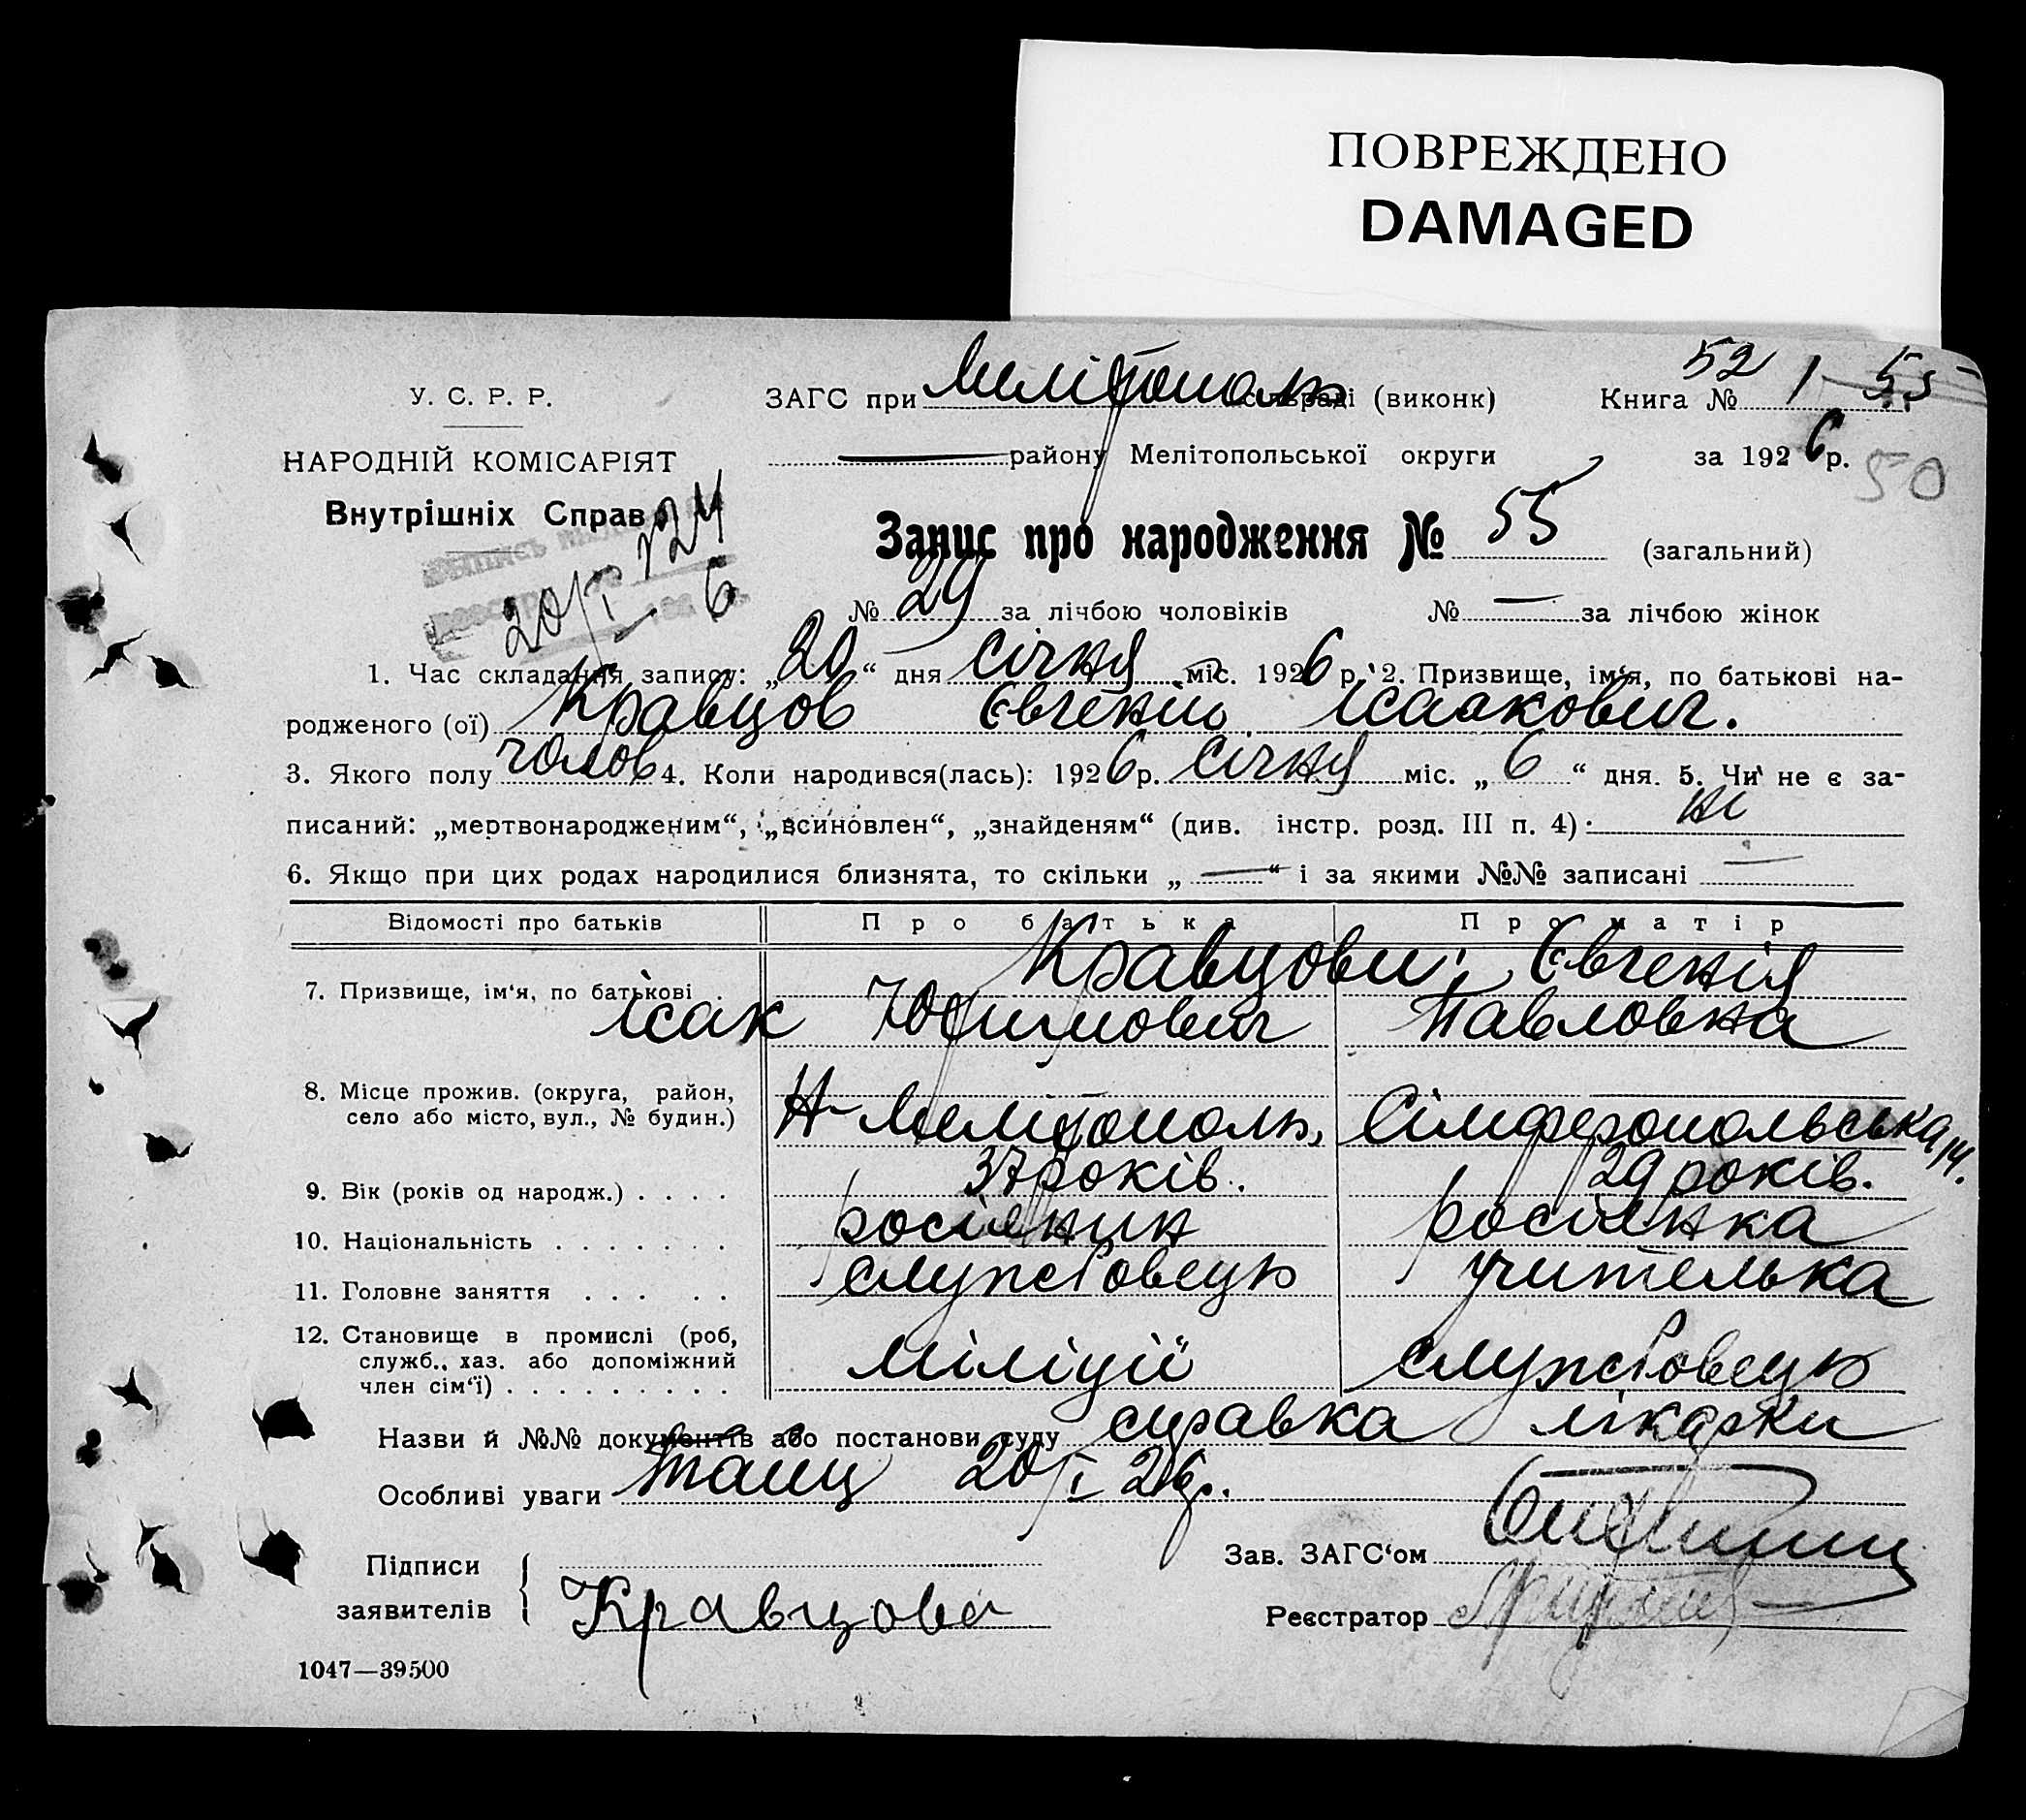 ПОВРЕЖДЕНО
DAMAGED
52
У. С. Р. Р.
ЗАГС при Мелітополь сільраді (виконк)
Книга № 1 55
НАРОДНІЙ КОМІСАРІЯТ
району Мелітопольської округи
за 1926 р.
50
Внутрішніх Справ
Запис про народження № 55 (загальний)
124
20/I 6
№ 29 за лічбою чоловіків № — за лічбою жінок
1. Час складання запису: „20“ дня січня міс. 1926 р. 2. Призвище, ім‘я, по батькові на-
родженого (ої) Кравцов Євгений Ісаакович.
3. Якого полу чолов 4. Коли народився(лась): 1926 р. січня міс. „6“ дня. 5. Чи не є за-
писаний: „мертвонародженим“, „всиновлен“, „знайденям“ (див. інстр. розд. III п. 4): ні
6. Якщо при цих родах народилися близнята, то скільки „—“ і за якими №№ записані —
Відомості про батьків Про батька Про матір
Кравцови: Євгенія
7. Призвище, ім‘я, по батькові
Ісак Юхимович Павловна
8. Місце прожив. (округа, район,
село або місто, вул., № будин.)
Н-Мелітополь, Сімферопольська 14.
9. Вік (років од народж.) . . . . 37 років. 29 років.
10. Національність . . . . . . . росіянин росіянка
11. Головне заняття . . . . . службовець учителька
12. Становище в промислі (роб,
служб., хаз. або допоміжний
член сім‘ї) . . . . . . . . .
міліції службовець
Назви й №№ документів або постанови суду справка лікарки
Особливі уваги 20/I 26р.
Підписи
заявителів
Кравцова
Зав. ЗАГС‘ом
Реєстратор
1047—39500